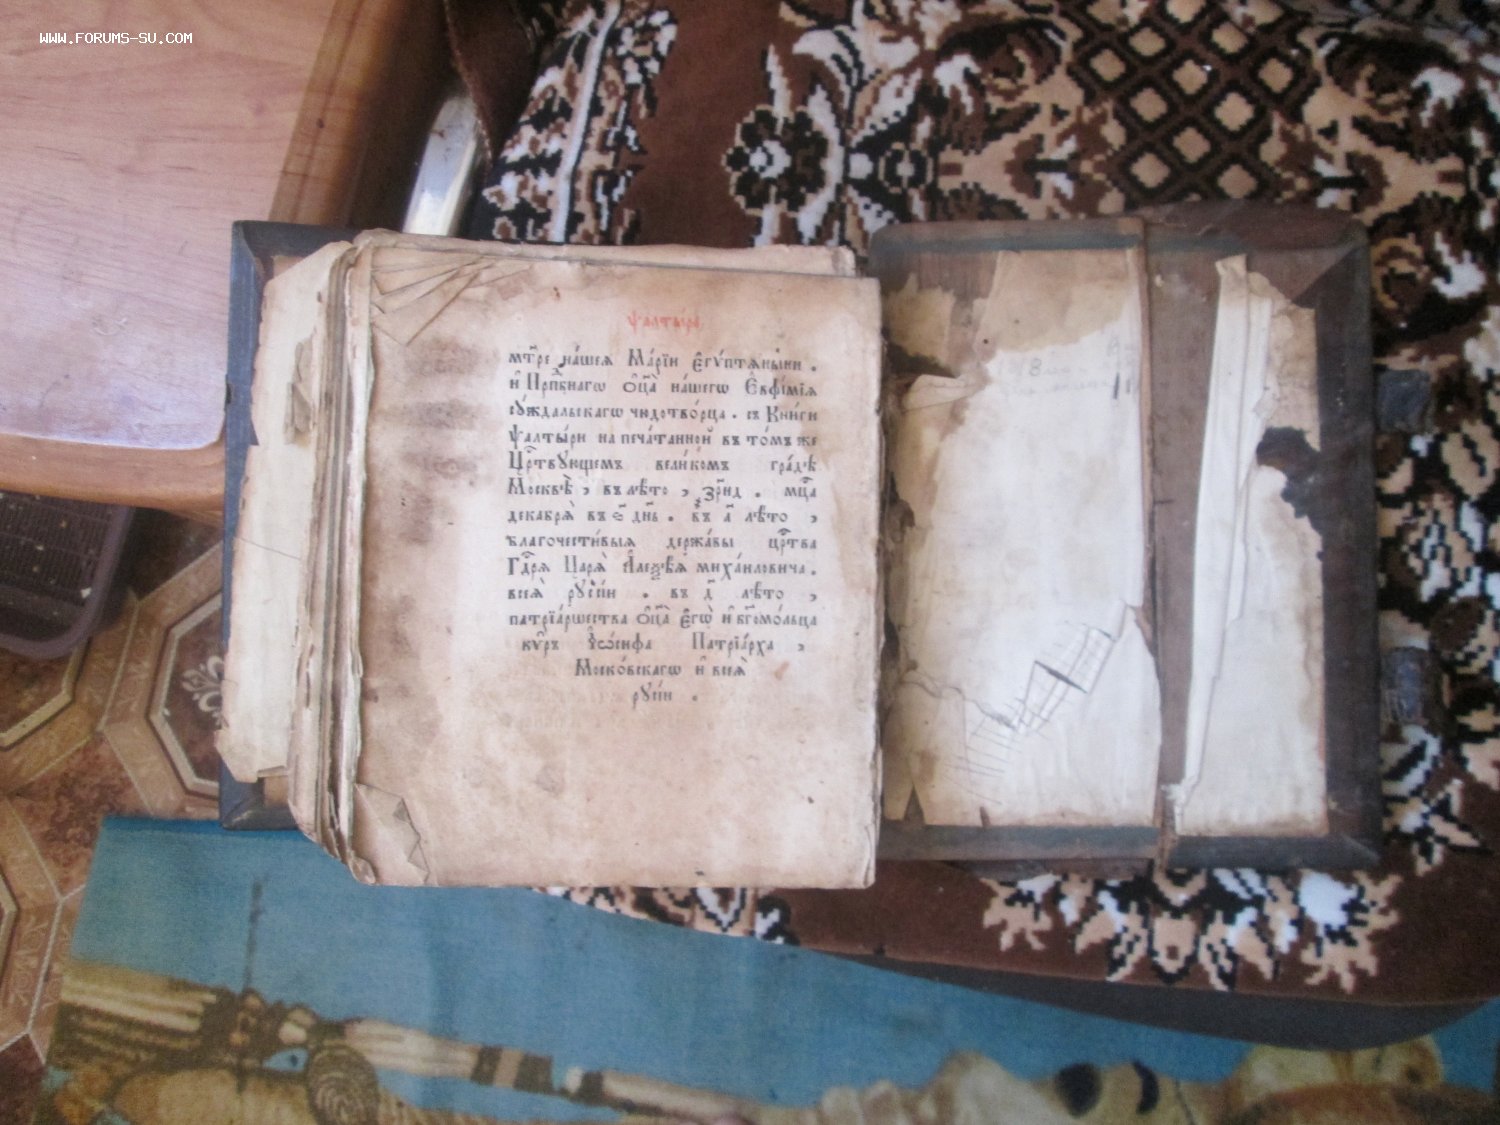 WWW.FORUMS-SU.COM
ѱалты́рь
мт҃ре на́шея Мари́и Єгѵ́птѧныни .
и҆ Прпⷣбнагѡ Ѻ҆ц҃а̀ на́шегѡ Є҆вѳі́мїѧ
сꙋ́ждальскагѡ чюдотво́рца . съ Кни́ги
Ѱалты́ри напеча́танной въ то́мъ же
Црⷭ҇твꙋющемъ вели́комъ гра́дѣ
Москвѣ̀ , въ лѣ́то , ҂зр҃нд . мцⷭ҇а
декабрѧ̀ въ є҃ дн҃ь . въ а҃ лѣ́то ,
благочести́выѧ держа́вы црⷭ҇тва
Гдⷭ҇рѧ Царѧ̀ А҆леѯѣ́ѧ миха́иловича .
всеѧ̀ рꙋсі́и . въ д҃ лѣ́то ,
патрїа́ршества Ѻ҆ц҃а̀ Є҆гѡ̀ и҆ бг҃омо́льца
кѵ́ръ І҆ѡ́сифа Патрїа́рха ,
Моско́вскагѡ и҆ всеѧ̀
рꙋсі́и .